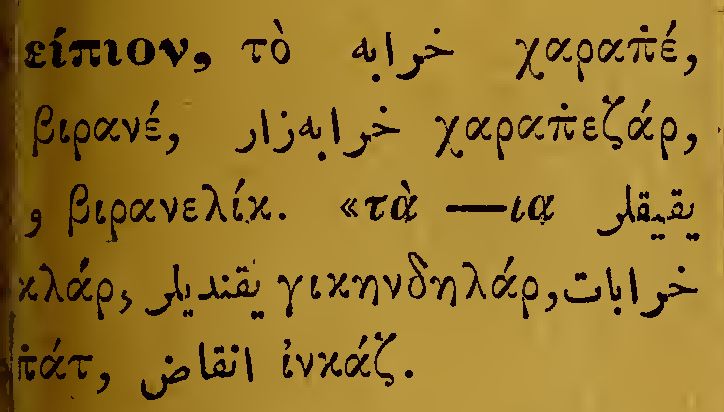 είπιον, τὸ خرابه χαραπ̇έ,
βιρανέ, خرابه‌زار χαραπ̇εζάρ,
و βιρανελίκ. «τὰ —ια يقيقلر
κλάρ, يقنديلر γικηνδηλάρ, خرابات
π̇άτ, انقاض ἰνκάζ.